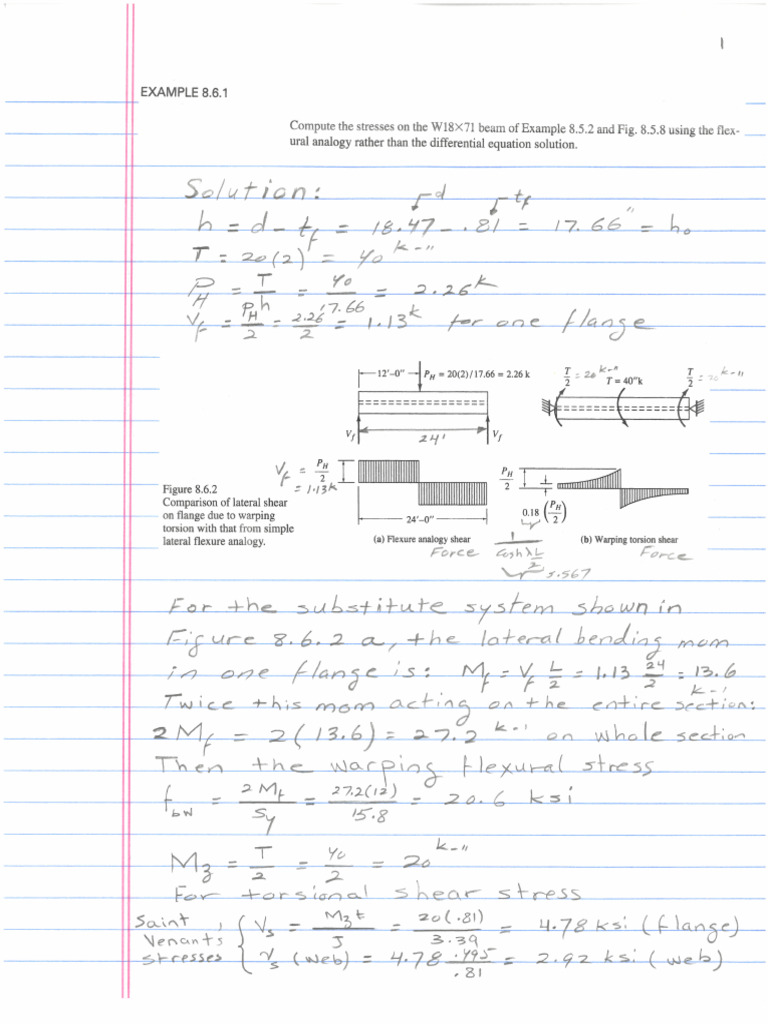 1
EXAMPLE 8.6.1
Compute the stresses on the W18×71 beam of Example 8.5.2 and Fig. 8.5.8 using the flex-
ural analogy rather than the differential equation solution.
Solution:
d tf
h = d - tf = 18.47 - .81 = 17.66" = ho
T = 20(2) = 40 k-"
PH = T/h = 40/17.66 = 2.26 k
Vf = PH/2 = 2.26/2 = 1.13 k for one flange
12'–0" PH = 20(2)/17.66 = 2.26 k
T/2 = 20 k-" T = 40"k T/2 = 20 k-"
Vf 24' Vf
Vf = PH/2 = 1.13k
24'–0"
PH/2
0.18 (PH/2)
Figure 8.6.2
Comparison of lateral shear
on flange due to warping
torsion with that from simple
lateral flexure analogy.
(a) Flexure analogy shear
Force
1/cosh λL/2
5.567
(b) Warping torsion shear
Force
For the substitute system shown in
Figure 8.6.2 a, the lateral bending mom
in one flange is: Mf = Vf L/2 = 1.13 24/2 = 13.6 k-'
Twice this mom acting on the entire section:
2Mf = 2(13.6) = 27.2 k-' on whole section
Then the warping flexural stress
fbw = 2Mf/Sy = 27.2(12)/15.8 = 20.6 ksi
Mz = T/2 = 40/2 = 20 k-"
For torsional shear stress
Saint Venants stresses
vs = Mz t/J = 20(.81)/3.39 = 4.78 ksi (flange)
vs (web) = 4.78 .495/.81 = 2.92 ksi (web)